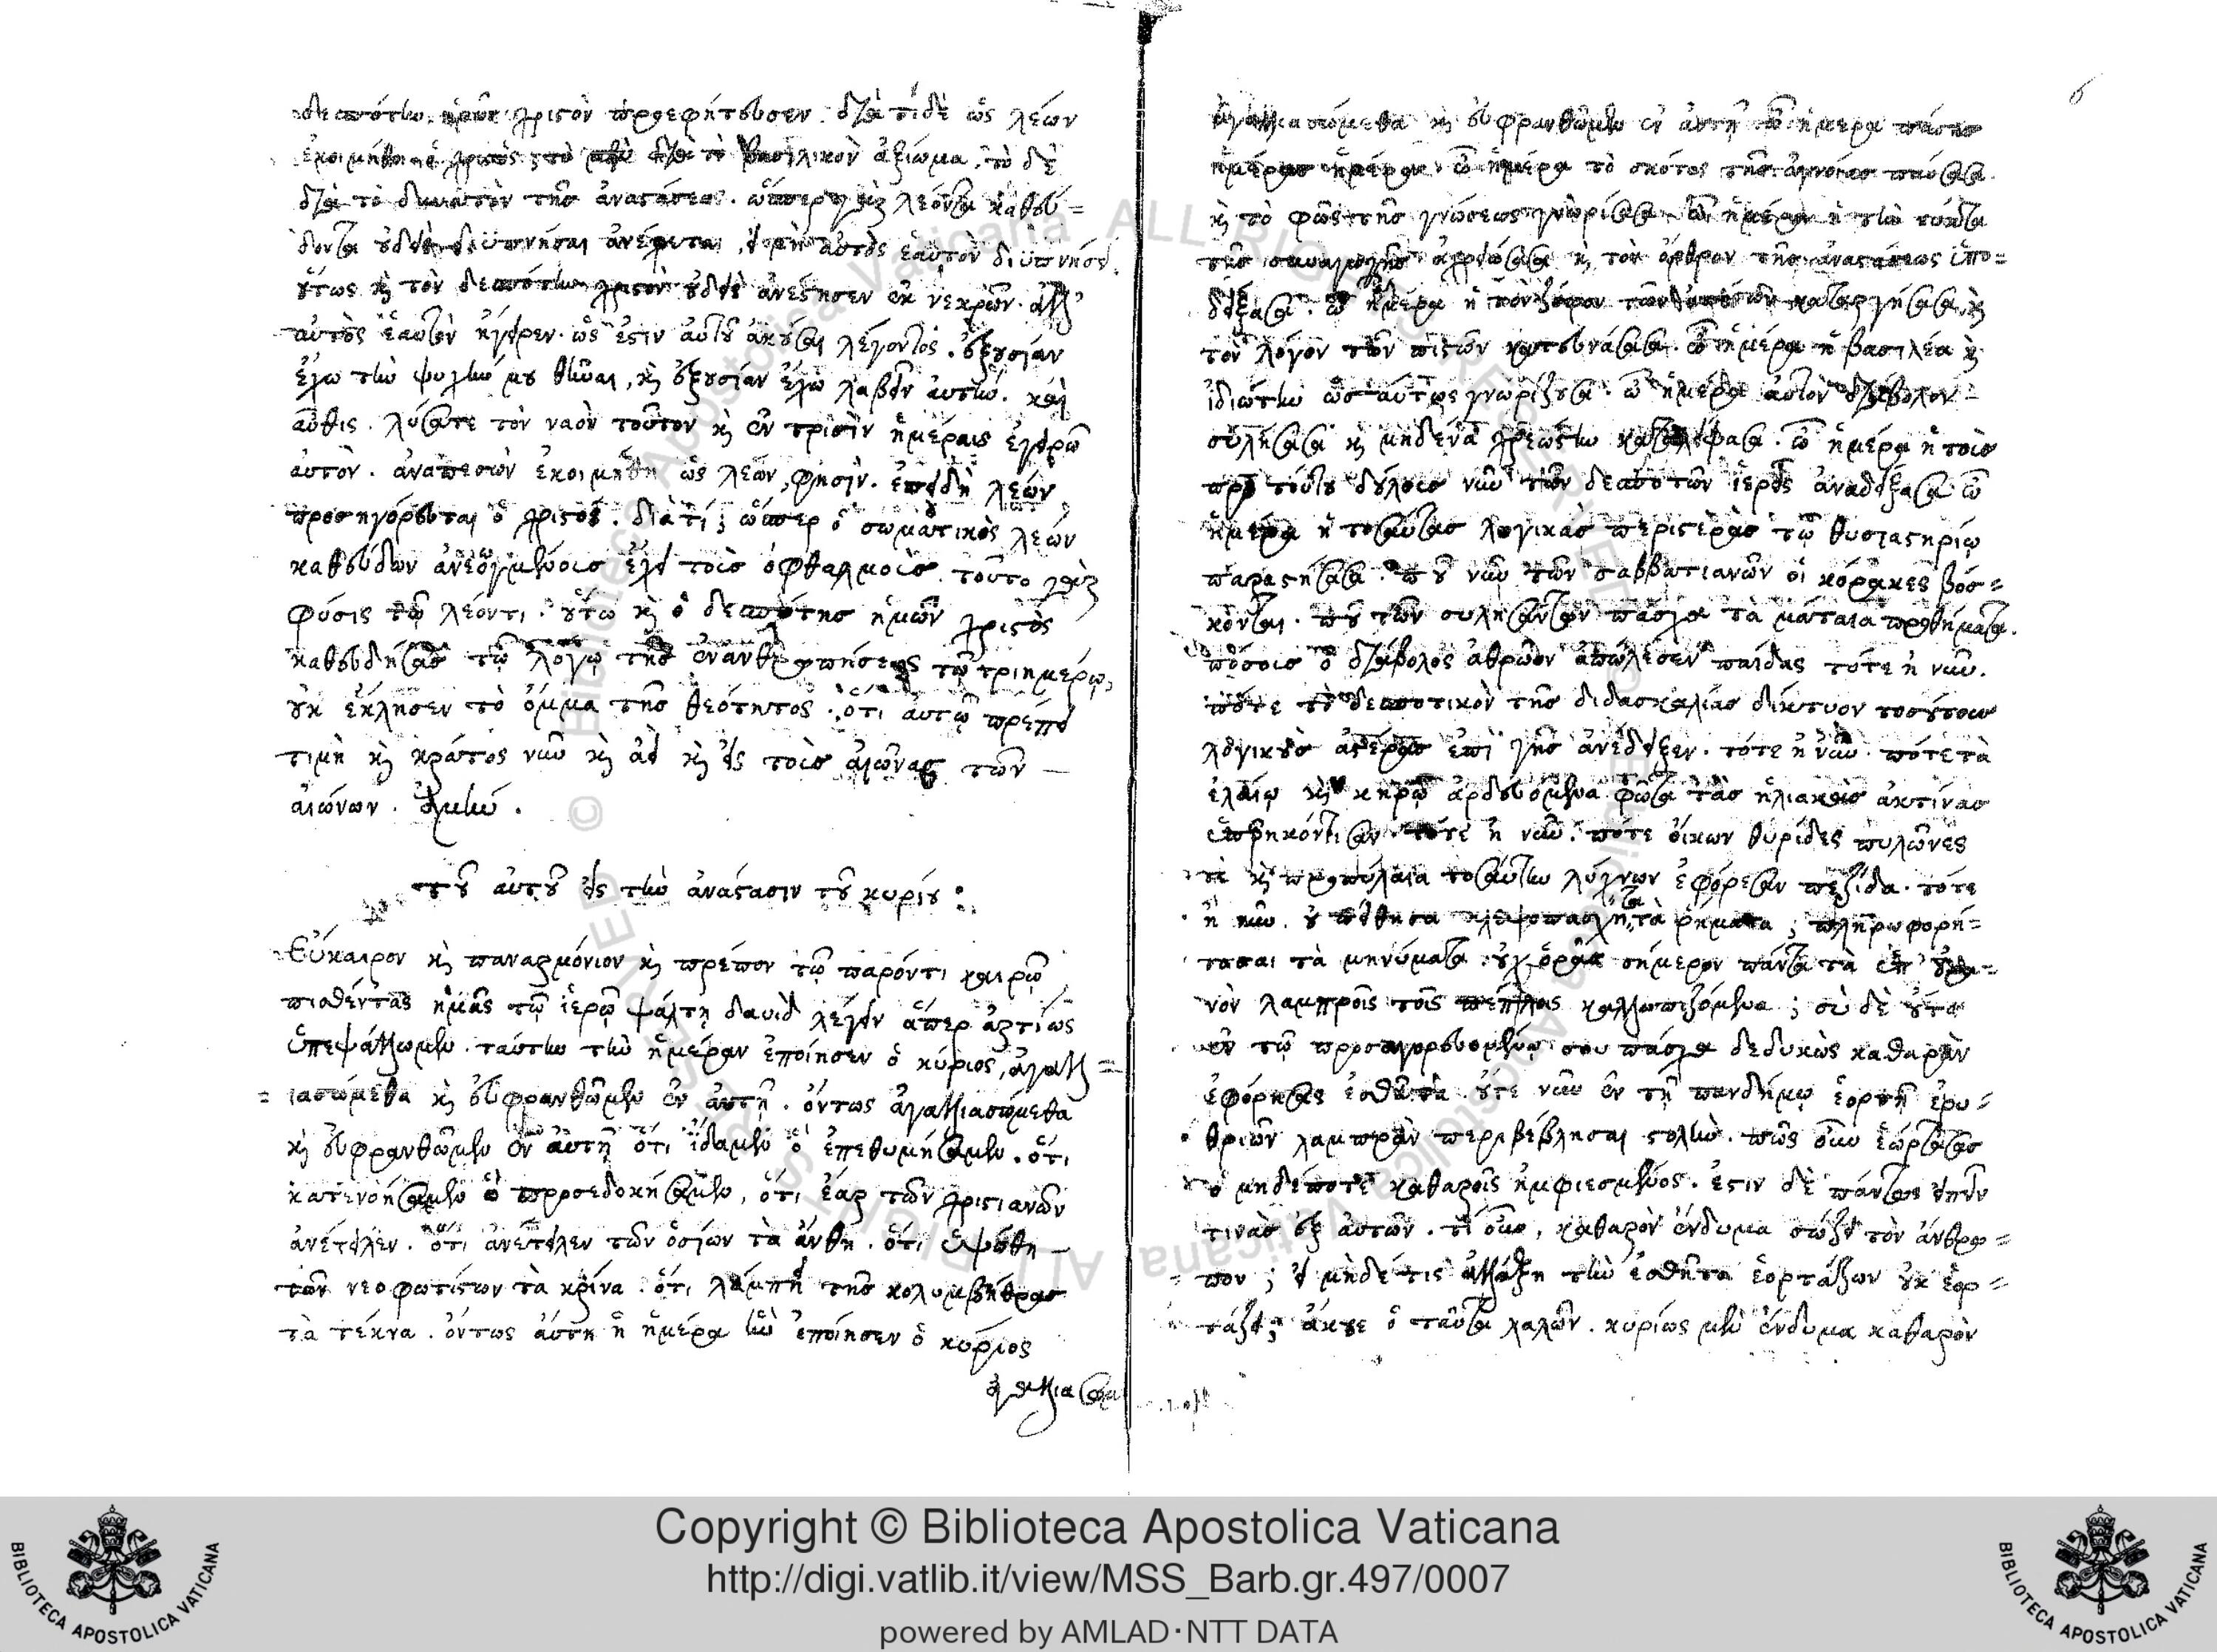 δεσπότην ἡμῶν χριστὸν προεφήτευσεν. διὰ τί δὲ ὡς λέων
ἐκοιμήθη ὁ χριστός; τὸ μὲν διὰ τὸ βασιλικὸν ἀξίωμα, τὸ δὲ
διὰ τὸ δυνατὸν τῆς ἀναστάσεως. ὥσπερ γὰρ λέοντα καθεύ=
δοντα οὐδεὶς διϋπνῆσαι ἀνέχεται, εἰ μὴ αὐτὸς ἑαυτὸν διϋπνήσει.
οὕτως καὶ τὸν δεσπότην χριστὸν οὐδεὶς ἀνέστησεν ἐκ νεκρῶν. ἀλλ'
αὐτὸς ἑαυτὸν ἤγειρεν. ὥς ἐστιν αὐτοῦ ἀκοῦσαι λέγοντος. ἐξουσίαν
ἔχω τὴν ψυχήν μου θεῖναι, καὶ ἐξουσίαν ἔχω λαβεῖν αὐτήν. καὶ
αὖθις. λύσατε τὸν ναὸν τοῦτον καὶ ἐν τρισὶν ἡμέραις ἐγερῶ
αὐτὸν. ἀναπεσὼν ἐκοιμήθη ὡς λέων, φησὶν. ἐπειδὴ λέων
προσηγόρευται ὁ χριστός. διὰ τί; ὥσπερ ὁ σωματικὸς λέων
καθεύδων ἀνεῳγμένους ἔχει τοὺς ὀφθαλμοὺς. τοῦτο γὰρ
φύσις τῷ λέοντι. οὕτω καὶ ὁ δεσπότης ἡμῶν χριστὸς
καθευδήσας τῷ λόγῳ τῆς ἐνανθρωπήσεως τῷ τριημέρῳ,
οὐκ ἔκλησεν τὸ ὄμμα τῆς θεότητος. ὅτι αὐτῷ πρέπει
τιμὴ καὶ κράτος νῦν καὶ ἀεὶ καὶ εἰς τοὺς αἰῶνας τῶν
αἰώνων. ἀμήν.
τοῦ αὐτοῦ εἰς τὴν ἀνάστασιν τοῦ κυρίου:
Εὔκαιρον καὶ παναρμόνιον καὶ πρέπον τῷ παρόντι καιρῷ
πισθέντας ἡμᾶς τῷ ἱερῷ ψάλτῃ δαυὶδ λέγειν ἅπερ ἀρτίως
ὑπεψάλλομεν. ταύτην τὴν ἡμέραν ἐποίησεν ὁ κύριος, ἀγαλλ=
=ιασώμεθα καὶ εὐφρανθῶμεν ἐν αὐτῇ. ὄντως ἀγαλλιασώμεθα
καὶ εὐφρανθῶμεν ἐν αὐτῇ ὅτι ἴδαμεν ὃ ἐπεθυμήσαμεν. ὅτι
κατενοήσαμεν ὃ προσεδοκήσαμεν, ὅτι ἔαρ τῶν χριστιανῶν
ἀνέτειλεν. ὅτι ἀνέτειλεν τῶν ὁσίων τὰ ἄνθη. ὅτι ὑψώθη
τῶν νεοφωτίστων τὰ κρίνα. ὅτι λάμπει τῆς κολυμβήθρας
τὰ τέκνα. ὄντως αὕτη ἡ ἡμέρα ἣν ἐποίησεν ὁ κύριος
ἀγαλλιασώμε
6
ἀγαλλιασώμεθα καὶ εὐφρανθῶμεν ἐν αὐτῇ ὦ ἡμέρα πάσης
ἡμέρας ἡμέρα. ὦ ἡμέρα τὸ σκότος τῆς ἀγνοίας παύσασα
καὶ τὸ φῶς τῆς γνώσεως γνωρίσασα. ὦ ἡμέρα ἡ τὴν νύκτα
τῆς συναγωγῆς καὶ τὸν ὄρθρον τῆς ἀναστάσεως ὑπο=
δείξασα. ὦ ἡμέρα ἡ τὸν ζόφον τῶν καταργήσασα, καὶ
τὸν λόγον τῶν πιστῶν κατευνάσασα. ὦ ἡμέρα ἡ βασιλέα καὶ
ἰδιώτην ὡσαύτως γνωρίζουσα. ὦ ἡμέρα αὐτὸν διάβολον
συλήσασα καὶ μηδένα χρεώστην καταλείψασα. ὦ ἡμέρα ἡ τοὺς
πρὸ τούτου δούλους νῦν τῶν δεσποτῶν ἱεροὺς ἀναδείξασα ὦ
ἡμέρα ἡ τοσαύτας λογικὰς περιστερὰς τῷ θυσιαστηρίῳ
παραστήσασα. ποῦ νῦν τῶν σαββατιανῶν οἱ κόρακες βόσ=
κονται. ποῦ τῶν συλησάντων πάσχα τὰ μάταια προθήματα.
πόσους ὁ διάβολος ἀθρῶον ἀπώλεσεν παῖδας τότε ἢ νῦν.
πότε τὸ δεσποτικὸν τῆς διδασκαλίας δίκτυον τοσούτους
λογικοὺς ἀστέρας ἐπὶ γῆς ἀνέδειξεν. τότε ἢ νῦν. πότε τὰ
ἐλαίῳ καὶ κηρῷ ἀρδευόμενα φῶτα τὰς ἡλιακὰς ἀκτίνας
τότε ἢ νῦν. πότε οἴκων θυρίδες πυλῶνές
τε καὶ προπύλαια τοσαύτην λύχνων ἐφόρεσαν πεζίδα. τότε
ἢ νῦν. οὐ τὰ ῥήματα; πληροφορή=
τασαι τὰ μηνύματα. οὐχ ὁρᾷς σήμερον πάντα τὰ ὑπ' οὐρα=
νὸν λαμπροῖς τοῖς πέπλοις καλλωπιζόμενα; σὺ δὲ οὔτε
ἐν τῷ προσαγορευομένῳ σου πάσχα δεδυκὼς καθαρὰν
ἐφόρησας ἐσθῆτα. οὔτε νῦν ἐν τῇ πανδήμῳ ἑορτῇ ἐρυ=
θριῶν λαμπρὰν περιβέβλησαι στολήν. πῶς οὖν ἑώρτασας
ὁ μηδέποτε καθαροῖς ἠμφιεσμένος. ἔστιν δὲ πάντως εἰπεῖν
τινὰς ἐξ αὐτῶν. τί οὖν, καθαρὸν ἔνδυμα σώζει τὸν ἄνθρω=
πον; εἰ μὴ δέ τις ἀλλάξῃ τὴν ἐσθῆτα ἑορτάζων οὐκ ἑορ=
τάζει; ἄκουε ὁ ταῦτα λαλῶν. κυρίως μὲν ἔνδυμα καθαρὸν
Copyright © Biblioteca Apostolica Vaticana
http://digi.vatlib.it/view/MSS_Barb.gr.497/0007
powered by AMLAD·NTT DATA
BIBLIOTECA APOSTOLICA VATICANA
BIBLIOTECA APOSTOLICA VATICANA